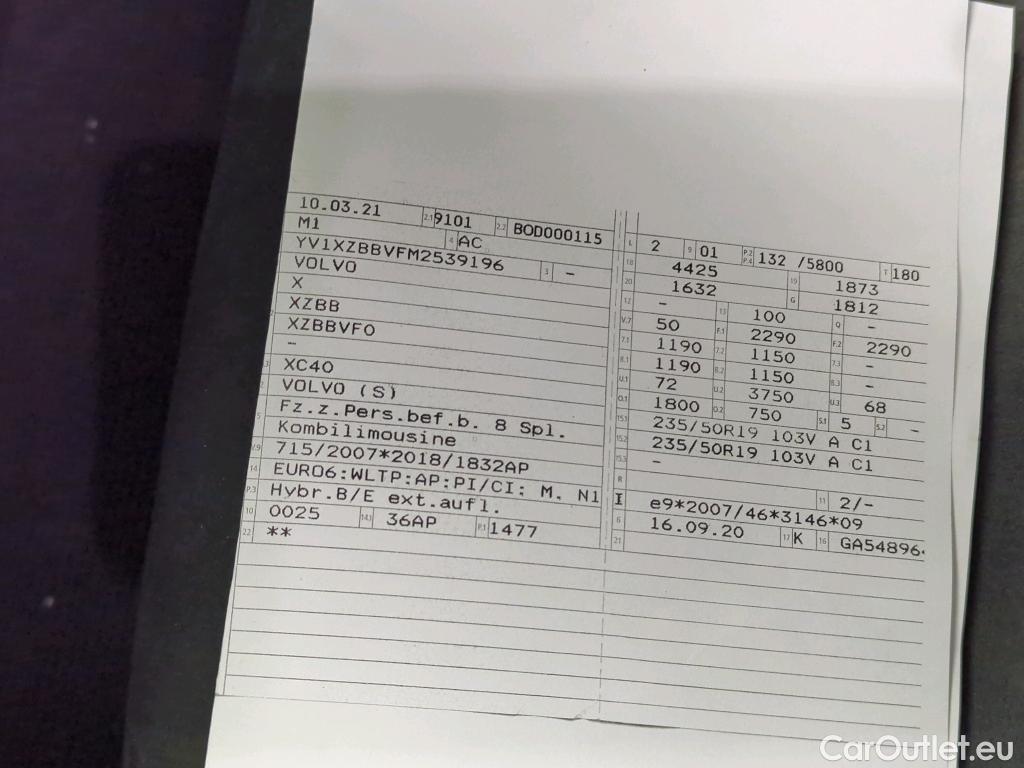 10.03.21 2.1 9101 2.2 BOD000115
M1 4 AC
YV1XZBBVFM2539196 3 -
VOLVO
X
XZBB
XZBBVF0
-
XC40
VOLVO (S)
Fz.z.Pers.bef.b. 8 Spl.
Kombilimousine
V.9 715/2007*2018/1832AP
14 EURO6:WLTP:AP:PI/CI: M, N1
P.3 Hybr.B/E ext.aufl.
10 0025 14.1 36AP P.1 1477
22 **
L 2 9 01 P.2 P.4 132 /5800 T 180
18 4425 19 1873
20 1632 G 1812
12 - 13 100 Q -
V.7 50 F.1 2290 F.2 2290
7.1 1190 7.2 1150 7.3 -
8.1 1190 8.2 1150 8.3 -
U.1 72 U.2 3750 U.3 68
O.1 1800 O.2 750 S.1 5 S.2 -
15.1 235/50R19 103V A C1
15.2 235/50R19 103V A C1
15.3 -
R 11 2/-
I e9*2007/46*3146*09
6 16.09.20 17 K 16 GA54896
21
CarOutlet.eu